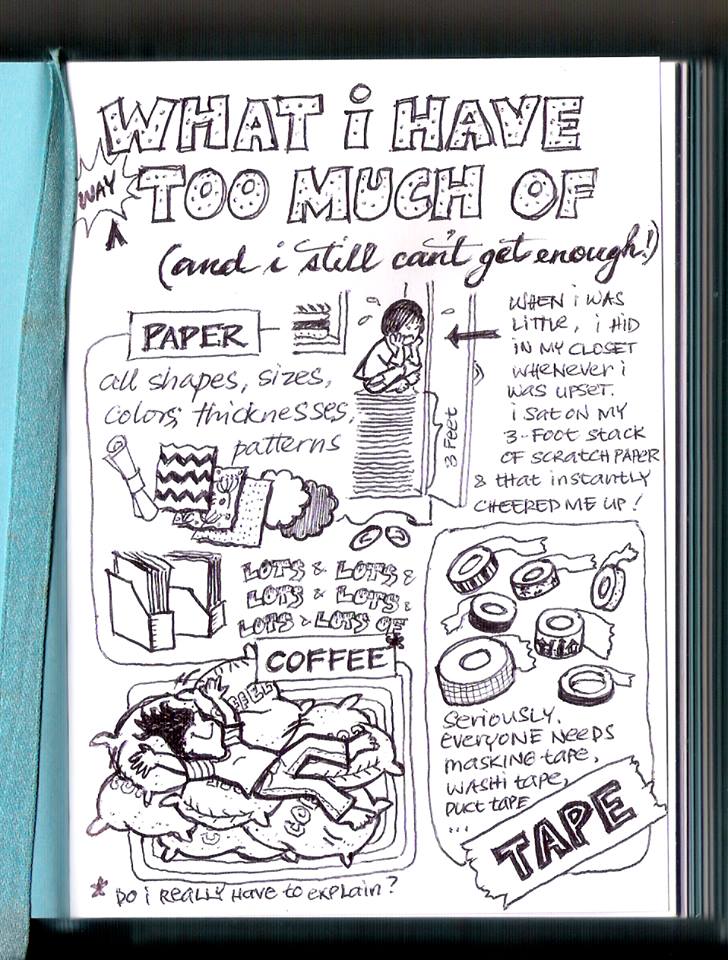 WHAT i HAVE
WAY
TOO MUCH OF
(and i still can't get enough!)
PAPER
all shapes, sizes,
colors, thicknesses,
patterns
3 Feet
WHEN i WAS
LiTTLE, i HiD
iN MY CLOSET
WHENEVER i
WAS UPSET.
i SAT ON MY
3-FOOT STACK
OF SCRATCH PAPER
& that instantly
CHEERED ME UP!
LOTS & LOTS &
LOTS & LOTS &
LOTS & LOTS OF
COFFEE*
* DO i REALLY HAVE to EXPLAIN?
SERiOUSLY.
EVERYONE NEEDS
MASKING tAPE,
WASHi tAPE,
DUCt TAPE
...
TAPE